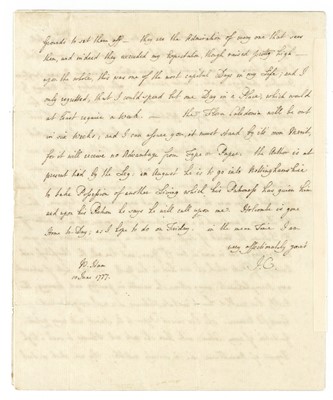 Grounds to set them off – they are the Admiration of every one that sees
them, and indeed they exceeded my Expectation, though raised pretty high –
upon the whole, this was one of the most capital Days in my Life, and I
only regretted, that I could spend but one Day in a Place, which would
at least require a Week. – the Flora Scotica will be out
in six Weeks, and I can assure you it must stand by its own Merit,
for it will receive no Advantage from Type or Paper. the Author is at
present laid by the Leg. in August he is to go into Nottinghamshire
to take Possession of another Living which his Patroness has given him
and upon his Return he says he will call upon me. Holcombe is gone
home to Day, as I hope to do on Friday. in the mean Time I am
very affectionately yours
J.C.
10 June 1777.